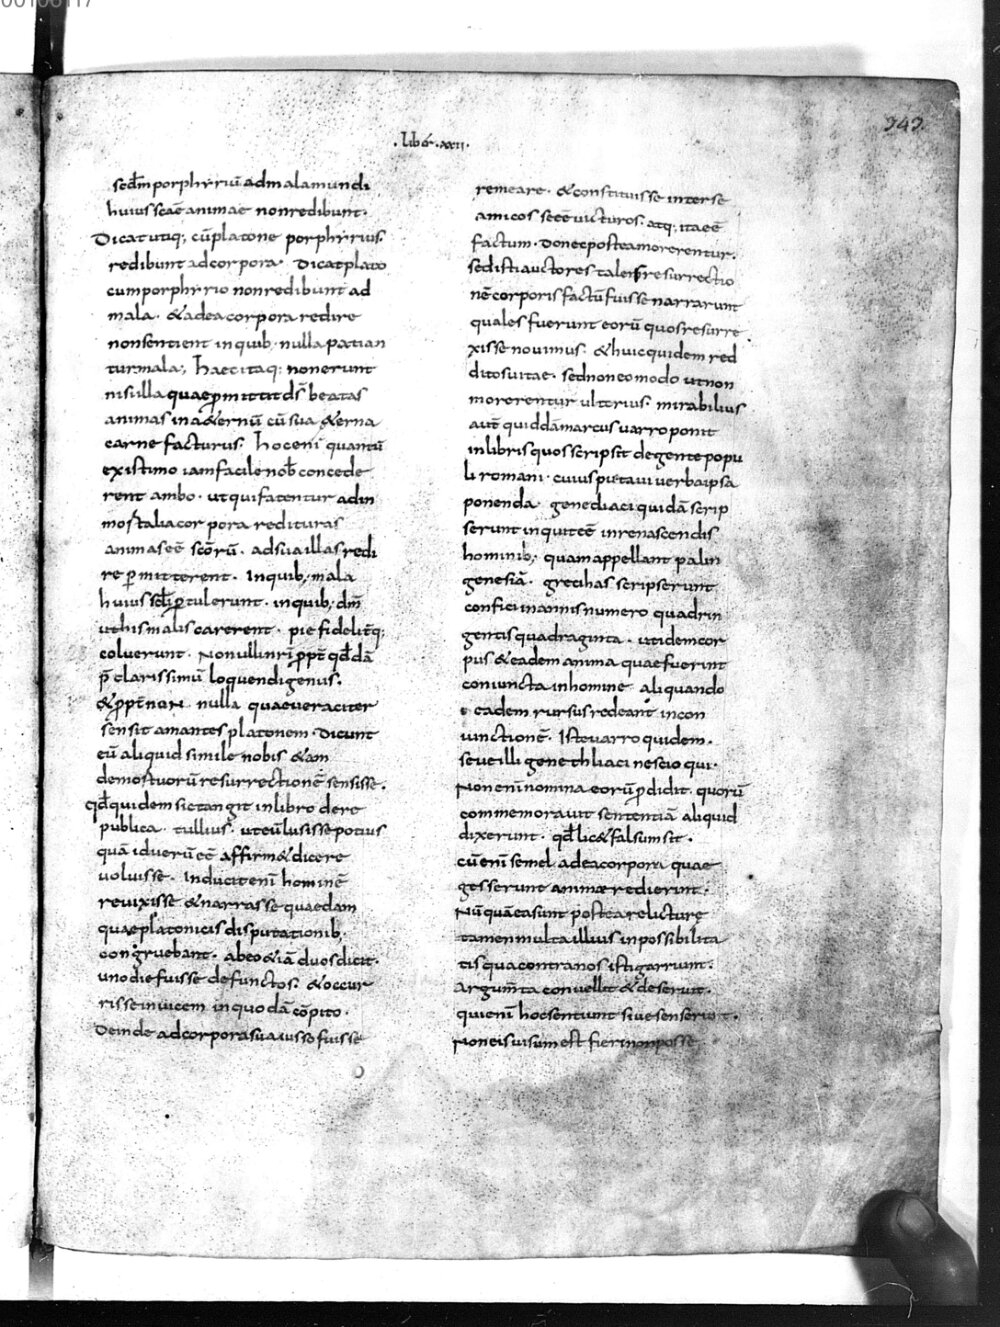 00106117
.liber.xxii.
343.
secdm porphyriū ad mala mundi
huius scāe animae non redibunt.
Dicat utiq; cū platone porphyrius.
redibunt ad corpora. Dicat plato
cum porphyrio non redibunt ad
mala. & ad ea corpora redire
non sentient in quib; nulla patian
tur mala; Haec itaq; non erunt
nisi illa quae ꝓmittit ds̄ beatas
animas in a&ernū cū sua &erna
carne facturus. Hoc enī quantū
existimo iam facile nob̄ concede
rent ambo. ut qui fatentur ad in
mortalia corpora redituras
animas eē scōrū. ad sua illas redi
re ꝑmitterent. In quib; mala
huius scli ꝑtulerunt. in quib; dm̄
ut his malis carerent. pie fidelit̄q;
coluerunt. Nonulli nr̄i ꝓpt̄ qd̄dā
p̄clarissimū loquendi genus.
& ꝓpt̄ non nulla quae ueraciter
sensit amantes platonem. Dicunt
eū aliquid simile nobis &iam
de mortuorū resurrectionē sensisse.
qd̄ quidem sic tangit in libro de re
publica. tullius. ut eū lusisse potius
quā id uerū eē affirm& dicere
uoluisse. Inducit enī hominē
reuixisse & narrasse quaedam
quae platonicis disputationib;
congruebant. abeo &iā duos dicit.
uno die fuisse defunctos. & occur
risse inuicem in quodā cōpito.
Deinde ad corpora sua iusso fuisse
remeare. & constituisse inter se
amicos se eē uicturos. atq; ita eē
factum. Donec postea morerentur.
sed isti auctores talem resurrectio
nē corporis factū fuisse narrarunt
quales fuerunt eorū quos resurre
xisse nouimus. & huic quidem red
ditos uitae. sed non eo modo ut non
morerentur ulterius. mirabilius
aut̄ quiddā marcus uarro ponit
in libris quos scripsit de gente popu
li romani. cuius putaui uerba ipsa
ponenda. genediaci quidā scrip
serunt inquit eē in renascendis
hominib; quam appellant palin
genesiā. greci has scripserunt
confici in annis numero quadrin
gentis quadraginta. ut idem cor
pus & eadem anima quae fuerint
coniuncta in homine aliquando
eadem rursus redeant in con
iunctionē. Iste uarro quidem.
seu illi genethliaci nescio qui.
Non enī nomina eorū ꝓdidit. quorū
commemorauit sententiā aliquid
dixerunt. qd̄ lic& falsum sit.
cū enī semel ad ea corpora quae
gesserunt animae redierint.
Nūquā ea sunt postea relicture
tamen multa illius inpossibilita
tis qua contra nos istigarrunt.
argum̄ta conuellit & deseruit.
qui enī hoc sentiunt siue senserit.
Non eis uisum est fieri non posse